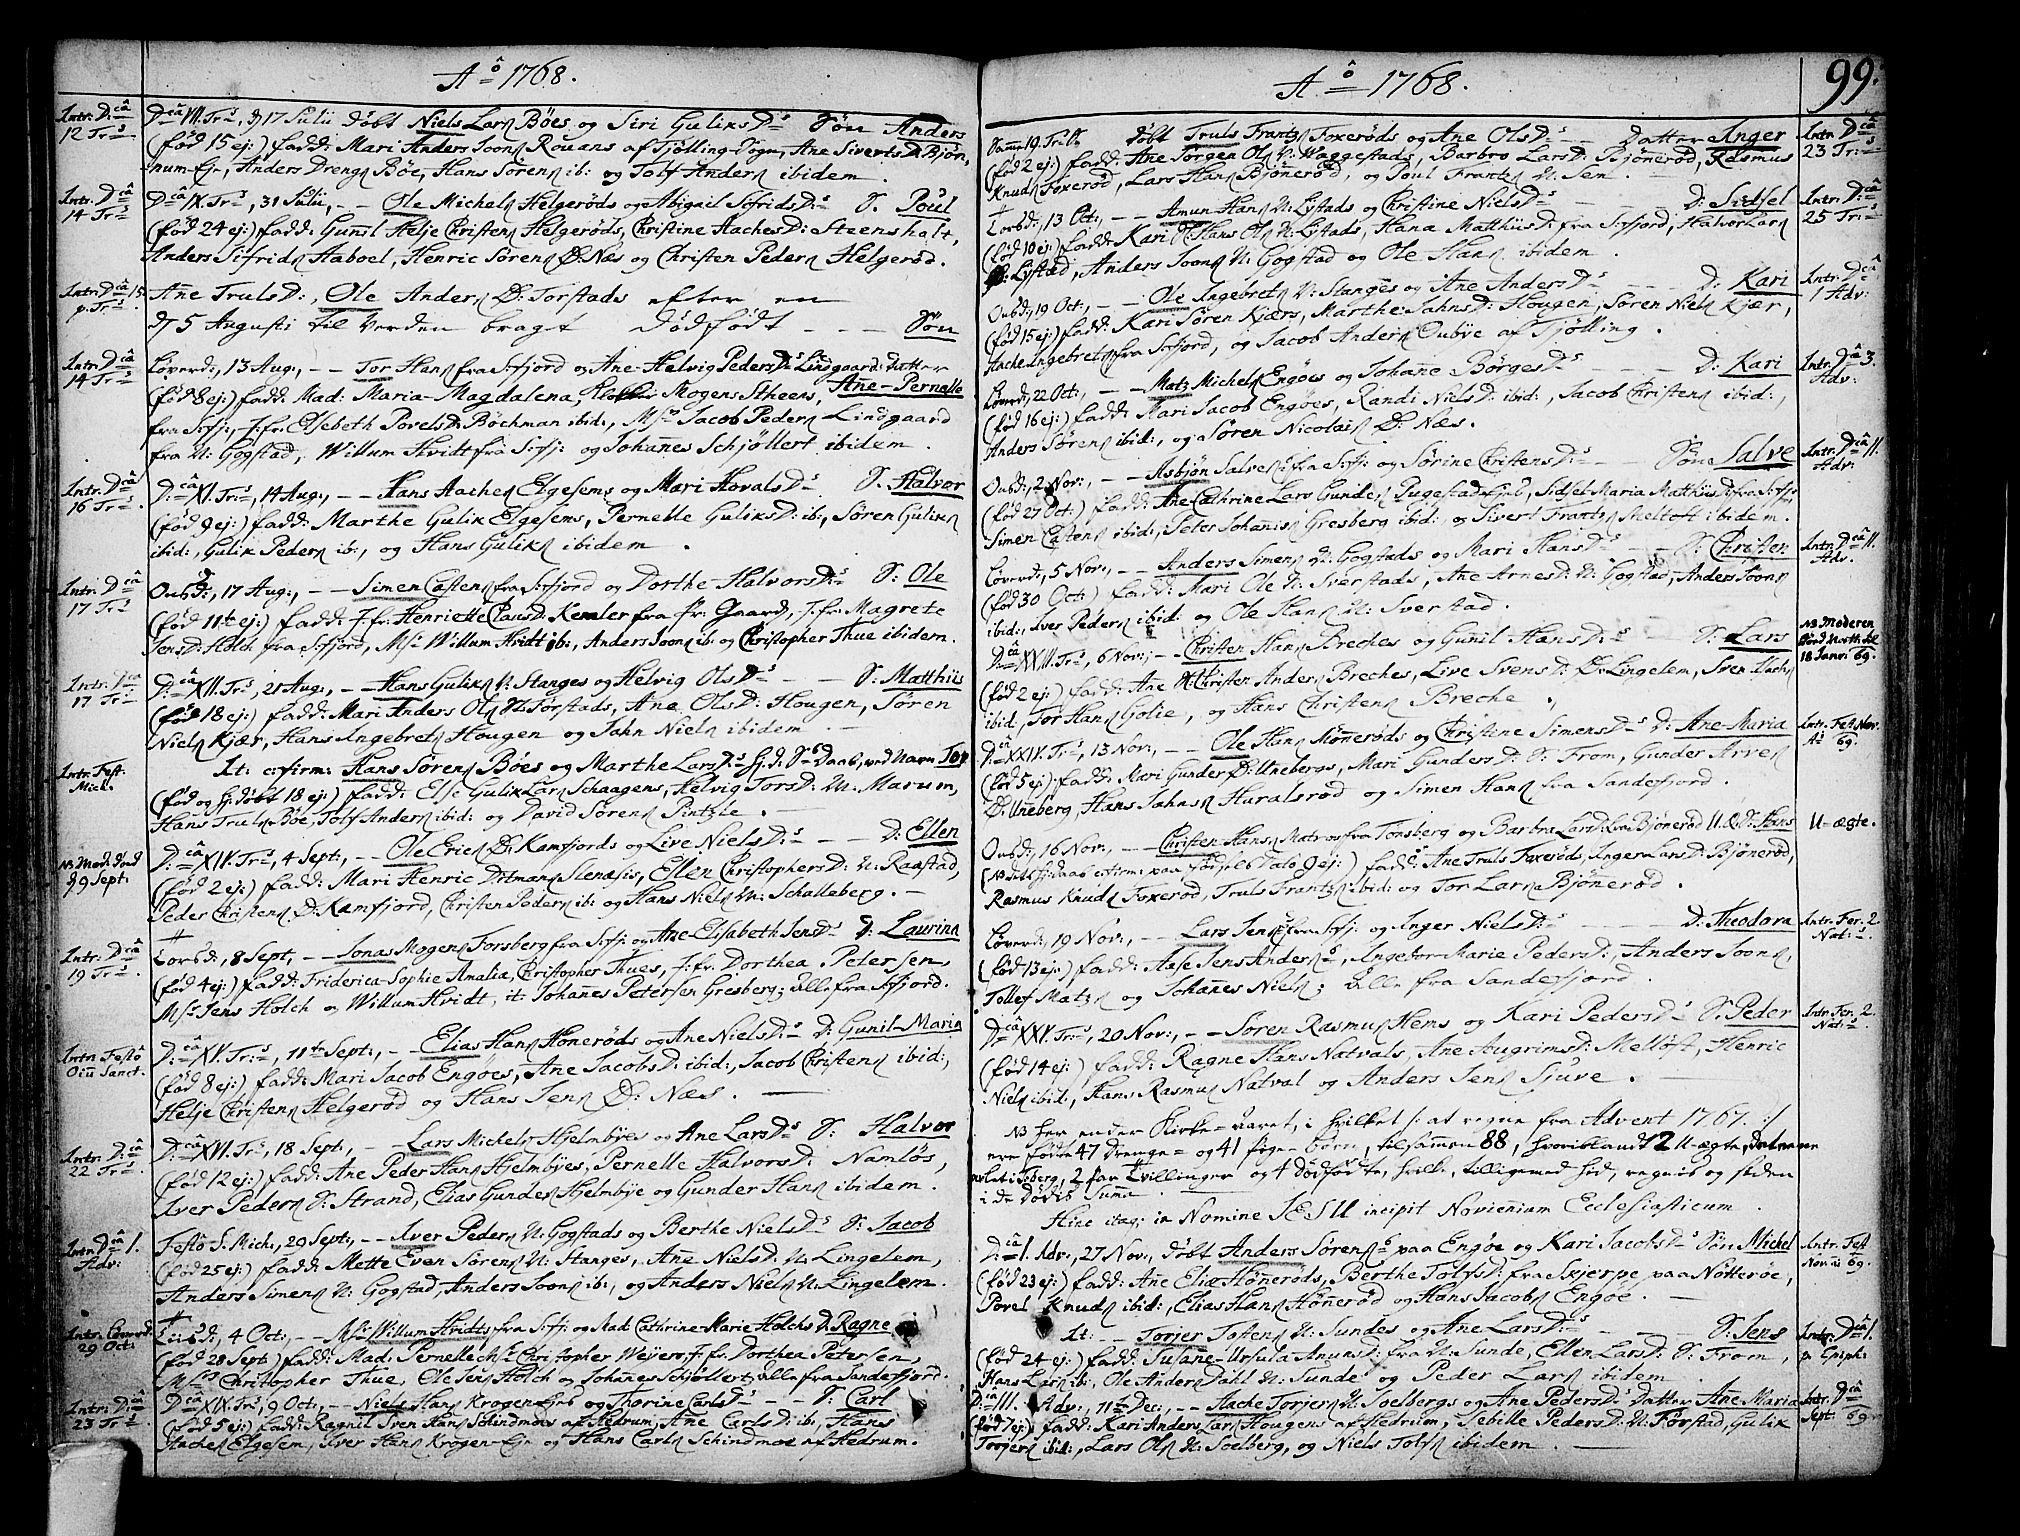 Aô 1768.
Intr: D:câ
12 Trs
Dcâ VII. Trs, d 17 Julii døbt Niels Larsn Böes og Siri Guliks D:s Søn Anders
(fød 15 ej:) fadd: Mari Anders Joons Rouans af Tjølling-Sogn, Ane Siverts D: Bjøn-
num-Eje, Anders Drengsn Böe, Hans Sørensn ib: og Tolf Andersn ibidem.
Intr: D:câ
14 Trs
Dcâ IX. Trs, 31 Julii, -- Ole Michelsn Helgerøds og Abigail Sifrids D:s S. Poul
(fød 24 ej:) fadd: Gunnil Helje Christensn Helgerøds, Christine Aaches D: Steensholt,
Anders Sifridsn Haboel, Henric Sørensn Ø: Næs og Christen Pedersn Helgerød.
Intr: Dcâ 15
p. Trs
Ane Truls D:, Ole Andersn Ø: Torstads efter en
d 5 Augusti til Verden bragt Dødfødt --- Søn
Intr: Dcâ
14 Trs
Løverd:, 13 Aug:, -- Tor Hansn fra S:fjord og Ane-Helvig Peders D:s Lindgaard: Datter
(fød 8 ej:) fadd: Mad: Maria-Magdalena, Mogens Stheens, Ane-Pernelle
fra S:fj:, J:fr: Elsebeth Povels D: Böchman ibid:, Msr Jacob Pedersn Lindgaard
fra N: Gogstad, Willum Hvidt fra S:fj: og Johannes Schjøllert ibidem.
Intr: Dcâ
16 Trs
D:câ XI. Trs, 14 Aug:, -- Hans Aachesn Elgesems og Mari Hovals D:s S. Halvor
(fød 9 ej:) fadd: Marthe Gulik Elgesems, Pernelle Guliks D: ib:, Søren Guliksn
ibid:, Gulik Pedersn ib:, og Hans Guliksn ibidem.
Intr: Dcâ
17 Trs
Onsd:, 17 Aug:, -- Simen Castensn fra S:fjord og Dorthe Halvors D:s S: Ole
(fød 11te ej:) fadd: J.fr: Henriette Claus D: Kemler fra Pr: Gaard, J.fr: Magrete
Jens D: Holch fra S:fjord, Msr Willum Hvidt ib:, Anders Joonsn ib: og Christopher Thue ibidem.
Intr: Dcâ
17 Trs
D:câ XII. Trs, 21 Aug:, -- Hans Guliksn N: Stanges og Helvig Ols D:s -- S: Matthiis
(fød 18 ej:) fadd: Mari Anders Olsn N: Torstads, Ane Ols D: Hougen, Søren
Nielsn Kjær, Hans Ingebretsn Hougen og Jahn Nielsn ibidem.
Intr: Fest:
Mich.
It: cfirm: Hans Sørensn Böes og Marthe Lars D:s Hj: D: S Daab, ved Navn Tor
(fød og Hj: døbt 18 ej:) fadd: Else Gulik Larsn Schaagens, Helvig Tors D: N: Marum,
Hans Trulsn Böe, Tolf Andersn ibid: og David Sørensn Pintzle.
NB Mod: død
d 9 Sept:
D:câ XIV. Trs, 4 Sept:, -- Ole Ericsn Ø: Kamfjords og Live Niels D:s -- D: Ellen
(fød 2 ej:) fadd: Mari Henric Ditmansn Slenæsis, Ellen Christophers D: N: Raastad,
Peder Christensn Ø: Kamfjord, Christen Pedersn ib: og Hans Nielsn N: Schalleberg.
Intr: Dcâ
19 Trs
Torsd:, 8 Sept, -- Jonas Mogensn Forsberg fra S:fj: og Ane-Elisabeth Jens D:s D: Laurina
(fød 4 ej:) fadd: Friderica-Sophie Amalia, Christopher Thues, J:fr: Dorthea Petersen,
Msr Jens Holch og Willum Hvidt, it: Johannes Petersen Gresberg; alle fra S:fjord.
Intr: Festô
Oiû Sanct.
D:câ XV. Trs, 11te Sept:, -- Elias Hansn Hønerøds og Ane Niels D:s D: Gunil-Maria
(fød 8 ej:) fadd: Mari Jacob Engøes, Ane Jacobs D: ibid:, Jacob Christensn ibid:,
Helje Christensn Helgerød og Hans Jensn Ø: Næs.
Intr: D:câ
22 Trs
D:câ XVI. Trs, 18 Sept:, -- Lars Michelsn Hjelmbyes og Ane Lars D:s S: Halvor
(fød 12 ej:) fadd: Ane Peder Hansn Hjelmbyes, Pernelle Halvors D: Namløs,
Iver Pedersn S: Strand, Elias Gundersn Hjelmbye og Gunder Hansn ibidem.
Intr: Dcâ 1.
Adv:
Festô S. Mich:, 29 Sept:, -- Iver Pedersn N: Gogstads og Berthe Niels D:s S: Jacob
(fød 25 ej:) fadd: Mette Even Sørensn N: Stanges, Ane Niels D: N: Lingelem,
Anders Simensn N: Gogstad, Anders Joonsn ib:, og Anders Nielsn N: Lingelem.
29 Oct:
Tiisd:, 4 Oct:, -- Msr Willum Hvidts fra S:fj: og Mad Cathrine-Marie Holchs D: Ragne
(fød 28 Sept:) fadd: Mad: Pernelle Msr Christopher Weyers, J:fr: Dorthea Petersen,
Msrs Christopher Thue, Ole Jensn Holch og Johannes Schjøllert, alle fra Sandefjord.
Intr: D:câ
23 Trs
Dcâ XIX. Trs, 9 Oct:, -- Niels Hansn Krogen-Ejes og Thorine Carls D:s -- S: Carl
(fød 5 ej:) fadd: Ragnil Iven Hansn Schindmoes af Hedrum, Ane Carls D: ib:, Hans
Aachesn Elgesem, Iver Hansn Krogen-Eje og Hans Carlsn Schindmoe af Hedrum.
Aô 1768.
99.
Domn: 19. Trit: døbt Truls Frantzn Foxerøds og Ane Ols D:s -- Datter Anger
(fød 2 ej:) fadd: Ane Jørgen Olsn V: Waggestads, Barbro Lars D: Bjønerød, Rasmus
Knudsn Foxerød, Lars Hansn Bjønerød, og Poul Frantzn N: Sem.
Intr: Dcâ
23 Trs
Torsd:, 13 Oct:, -- Amun Hansn N: Lystads og Christine Niels D:s -- D: Sidsel
(fød 10 ej:) fadd: Kari Hans Olsn N: Lystads, Hana Matthiis D: fra S:fjord, Halvor Larsn
Ø: Lystad, Anders Joonsn N: Gogstad og Ole Hansn ibidem.
Intr: D:câ
25 Trs
Onsd:, 19 Oct:, -- Ole Ingebretsn N: Stanges og Ane Anders D:s -- D: Kari
(fød 15 ej:) fadd: Kari Søren Kjærs, Marthe Jahns D: Hougen, Søren Nielsn Kjær,
Aache Ingebretsn fra S:fjord, og Jacob Andersn Oubye af Tjølling.
Intr: Dcâ
1 Adv:
Løverd:, 22 Oct:, -- Matz Michelsn Engøes og Johanne Børges D:s -- D: Kari
(fød 16 ej:) fadd: Mari Jacob Engøes, Randi Niels D: ibid:, Jacob Christensn ibid:,
Anders Sørensn ibid:, og Søren Nicolaisn Ø: Næs.
Intr: Dcâ 3.
Adv:
Onsd:, 2 Nov:, -- Asbjøn Salvesn fra S:fj: og Sørine Christens D:s -- Søn Salve
(fød 27 Oct:) fadd: Ane Cathrine Lars Gundersn Pugestad-Ejes, Sidsel Maria Matthiis D: fra S:fj:
Simen Castensn ibid:, Peter Johannisn Gresberg ibid: og Sivert Frantzn Meltoft ibidem.
Intr: Dcâ 11.
Adv:
Løverd:, 5 Nov:, -- Anders Simensn N: Gogstads og Mari Hans D:s -- S: Christen
(fød 30 Oct:) fadd: Mari Ole N: Sverstads, Ane Arnes D: N: Gogstad, Anders Joonsn
ibid:, Iver Pedersn ibid: og Ole Hansn N: Sverstad.
Intr: Dcâ 11.
Adv.
D:câ XXIII. Trs, 6 Nov:, -- Christen Hansn Breches og Gunil Hans D:s -- S: Lars
(fød 2 ej:) fadd: Ane Christen Andersn Breches, Live Svens D: Ø: Lingelem, Sven Aachesn
ibid:, Tor Hansn Golie, og Hans Christensn Breche.
NB Moderen
18 Janv: 69.
D:câ XXIV. Trs, 13 Nov:, -- Ole Hansn Mønnerøds og Christine Simens D:s D: Ane-Maria
(fød 5 ej:) fadd: Mari Gunder Ø: Unebergs, Mari Gunders D: S: From, Gunder Arvesn
Ø: Unneberg, Hans Jahnsn Huralsrød og Simen Hansn fra Sandefjord.
Intr: Fest. Nov.
Ai 69.
Onsd:, 16 Nov:, -- Christen Hansn, Matros fra Tønsberg og Barbra Lars D: fra Bjønerød U. Æ: D: Hans
(NB dets Hj: daab cfirm: paa Fødsels Dag 9 ej:) fadd: Ane Truls Foxerøds, Inger Lars D: Bjønerød,
Rasmus Knudsn Foxerød, Truls Frantzn ibid: og Tor Larsn Bjønnerød.
U-ægte.
Løverd:, 19 Nov:, -- Lars Jensn fra S:fj: og Inger Niels D:s -- D: Theodora
(fød 13 ej:) fadd: Aase Jens Andersns, Ingebor-Marie Peders D:, Anders Joonsn,
Tollef Matzn og Johannes Nielsn; alle fra Sandefjord.
Intr: Fer: 2.
Nat:s
Dcâ XXV. Trs, 20 Nov:, -- Søren Rasmusn Hems og Kari Peders D:s S: Peder
(fød 14 ej:) fadd: Ragne Hans Natvals, Ane Augrims D: Melløst, Henric
Nielsn ibid:, Hans Rasmusn Natval og Anders Jensn Sjuve.
Intr Fer: 2.
Nat:s
NB her ender Kirke-aaret, i hvilket /: at regne fra Advent 1767. :/
ere fødte 47 Drenge- og 41 Pige-Børn, tilsammen 88, hvoriblandt 2 U-ægte,
2 Par Tvillinger og 4 Dødfødte,
i de Dødis Suma.
Hinc itaq: in Nomine JESU incipit Novennium Ecclesiasticum.
D:câ 1. Adv:, 27 Nov:, døbt Anders Sørensns paa Engøe og Kari Jacobs D:s Søn Michel
(fød 23 ej:) fadd: Ane Elias Hønnerøds, Berthe Tolfs D: fra Skjerpe paa Nøtterøe,
Povel Knudsn ibid:, Elias Hansn Hønnerød og Hans Jacobsn Engøe.
Intr: Fest
Novi ai 69.
It: -- Torjer Tostensn N: Sundes og Ane Lars D:s -- S: Jens
(fød 24 ej:) fadd: Susane-Ursula Anuns D: fra N: Sunde, Ellen Lars D: S: From,
Hans Larsn ib:, Ole Andersn Dahl N: Sunde og Peder Larsn ibidem.
Intr: Dcâ 1.
p Epiph:
D:câ III. Adv:, 11te Dec:, -- Aache Torjersn N: Soelbergs og Ane Peders D:s Datter Ane Maria
(fød 7 ej:) fadd: Kari Anders Larsn Hougens af Hedrum, Sebille Peders D: N: Førstad, Gulik
Torjersn ibid:, Lars Olsn N: Soelberg, og Niels Tolfsn ibidem.
Intr: Dcâ
Sept: 69.